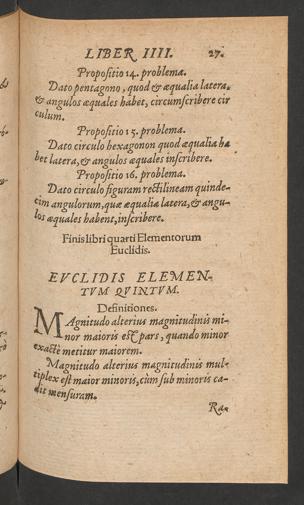 LIBER IIII. 27.
Propositio 14. problema.
Dato pentagono, quod & æqualia latera,
& angulos æquales habet, circumscribere cir
culum.
Propositio 15. problema.
Dato circulo hexagonon quod æqualia ha
bet latera, & angulos æquales inscribere.
Propositio 16. problema.
Dato circulo figuram rectilineam quinde-
cim angulorum, quæ æqualia latera, & angu-
los æquales habent, inscribere.
Finis libri quarti Elementorum
Euclidis.
EVCLIDIS ELEMEN-
TVM QVINTVM.
Definitiones.
MAgnitudo alterius magnitudinis mi-
nor maioris est pars, quando minor
exactè metitur maiorem.
Magnitudo alterius magnitudinis mul-
tiplex est maior minoris, cùm sub minoris ca-
dit mensuram.
Ra-